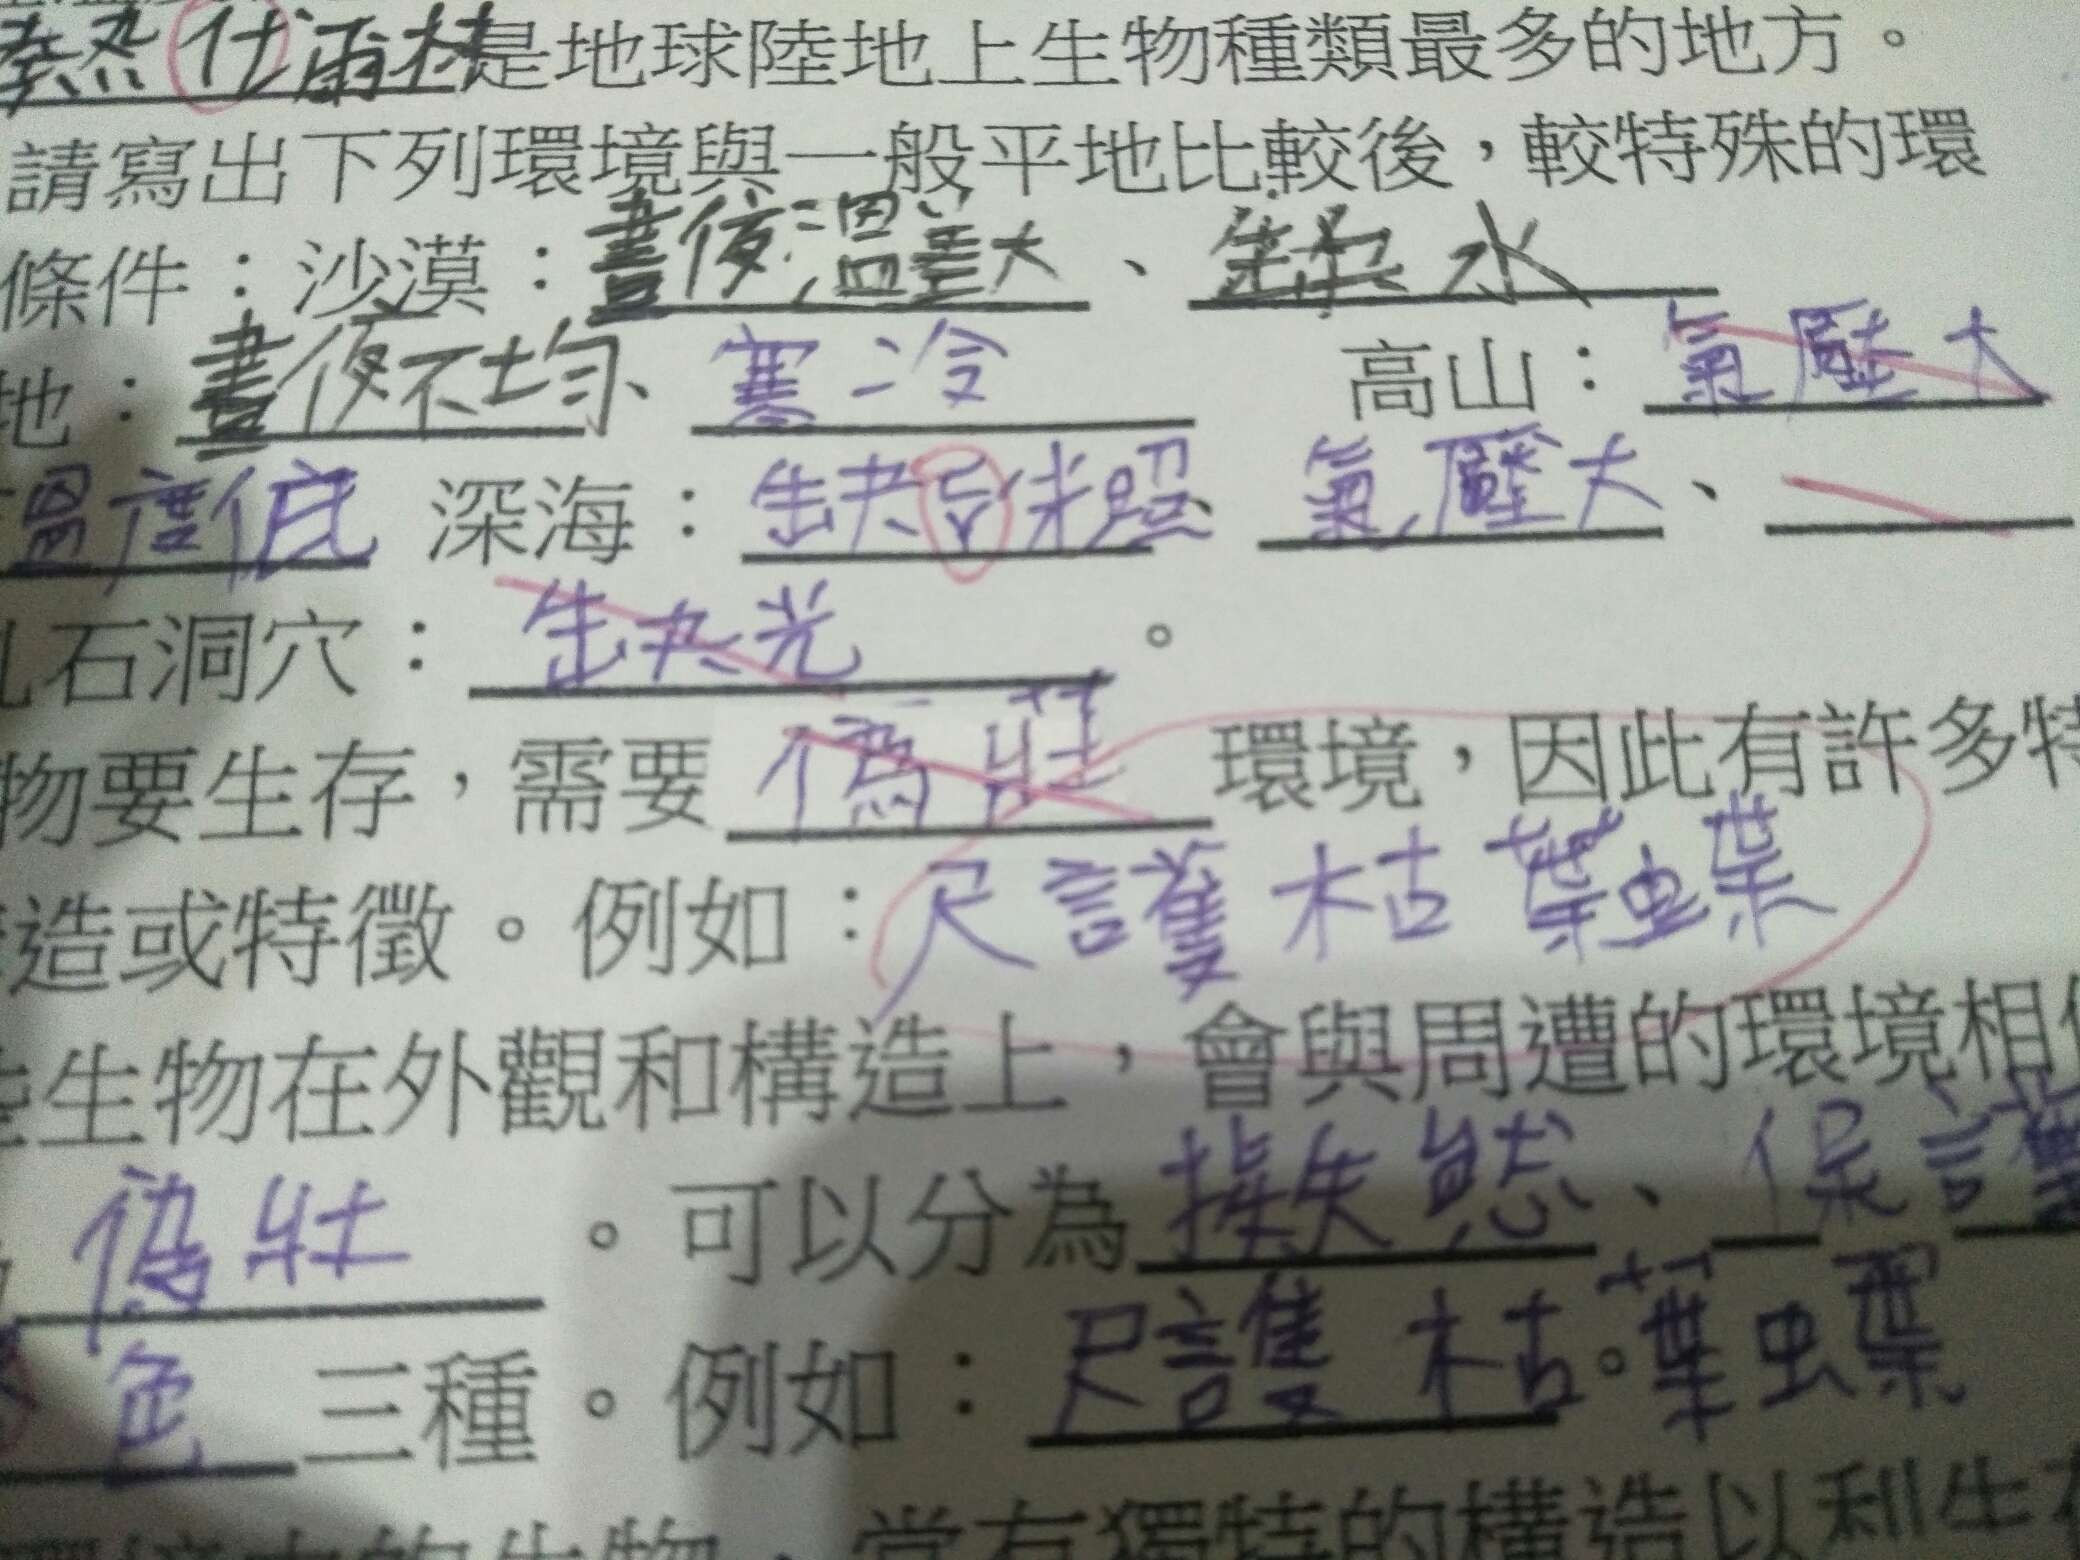 熱仕雨林是地球陸地上生物種類最多的地方。
請寫出下列環境與一般平地比較後，較特殊的環
條件：沙漠：晝夜溫差大、缺水
地：晝夜不均、寒冷 高山：氣壓大
溫度低 深海：缺光照、氣壓大、
石洞穴：缺光。
物要生存，需要偽壯環境，因此有許多特
造或特徵。例如：尺蠖 枯葉蝶
生物在外觀和構造上，會與周遭的環境相似
偽壯。可以分為擬態、保護
色三種。例如：尺蠖 枯葉蝶
的生物，常有獨特的構造以利生存